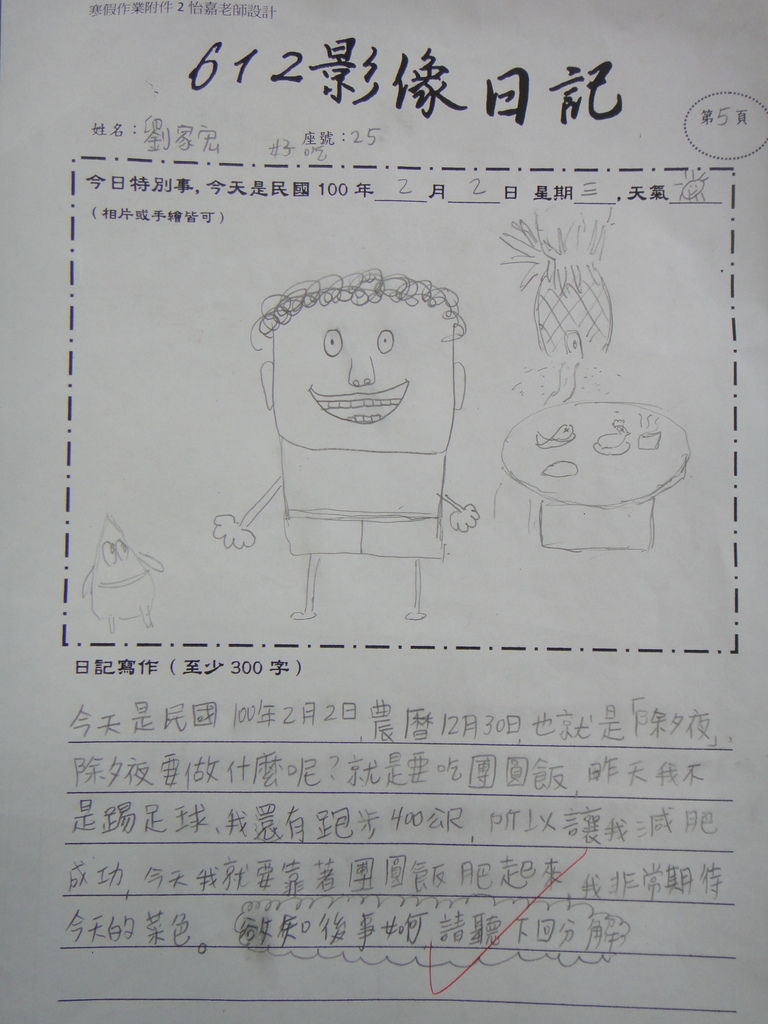 寒假作業附件2怡嘉老師設計
612影像日記
第5頁
姓名：劉家宏 座號：25
好吃
今日特別事，今天是民國100年2月2日 星期三，天氣
（相片或手繪皆可）
日記寫作（至少300字）
今天是民國100年2月2日,農曆12月30日,也就是「除夕夜」、
除夕夜要做什麼呢？就是要吃團圓飯,昨天我不
是踢足球、我還有跑步400公尺,所以讓我減肥
成功,今天我就要靠著團圓飯肥起來,我非常期待
今天的菜色。欲知後事如何請聽下回分解